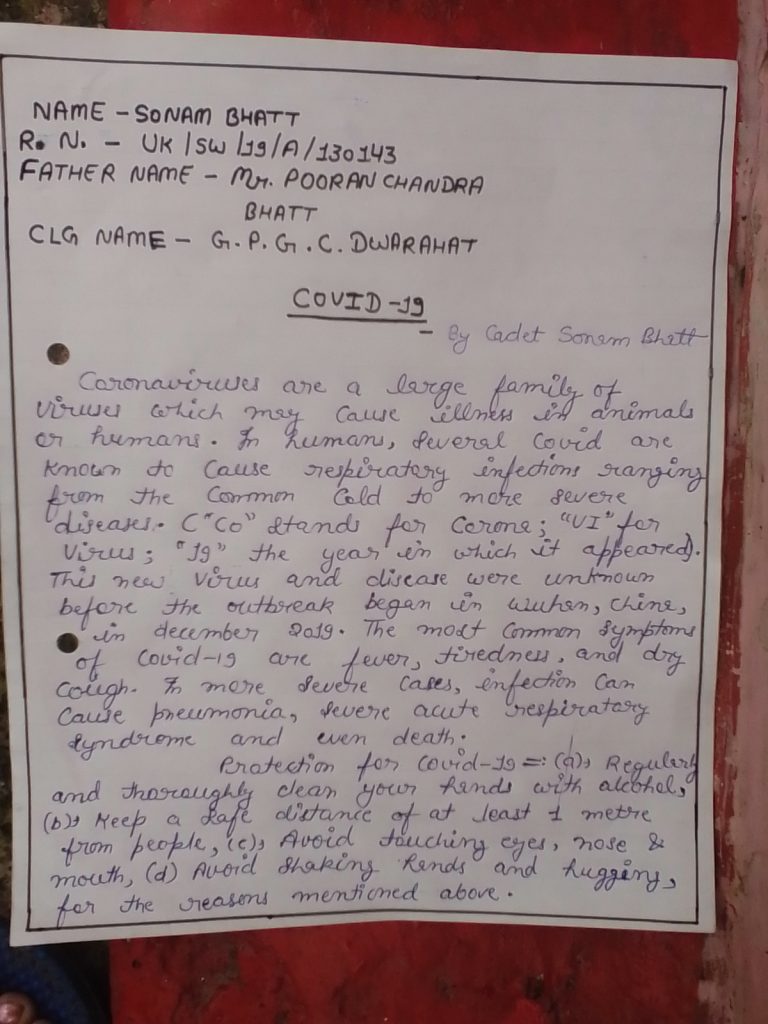 NAME - SONAM BHATT
R. N. - UK/SW/19/A/130143
FATHER NAME - Mr. POORAN CHANDRA
BHATT
CLG NAME - G.P.G.C. DWARAHAT
COVID-19
- By Cadet Sonam Bhatt
Coronaviruses are a large family of
viruses which may cause illness in animals
or humans. In humans, several Covid are
known to cause respiratory infections ranging
from the Common Cold to more severe
diseases. ("Co" stands for Corona; "VI" for
Virus; "19" the year in which it appeared).
This new Virus and disease were unknown
before the outbreak began in wuhan, china,
in december 2019. The most Common Symptoms
of Covid-19 are fever, tiredness, and dry
Cough. In more severe cases, infection can
cause pneumonia, severe acute respiratory
syndrome and even death.
Protection for Covid-19 =: (a), Regularly
and thoroughly clean your hands with alcohol,
(b), Keep a safe distance of at least 1 metre
from people, (c), Avoid touching eyes, nose &
mouth, (d) Avoid shaking hands and hugging,
for the reasons mentioned above.